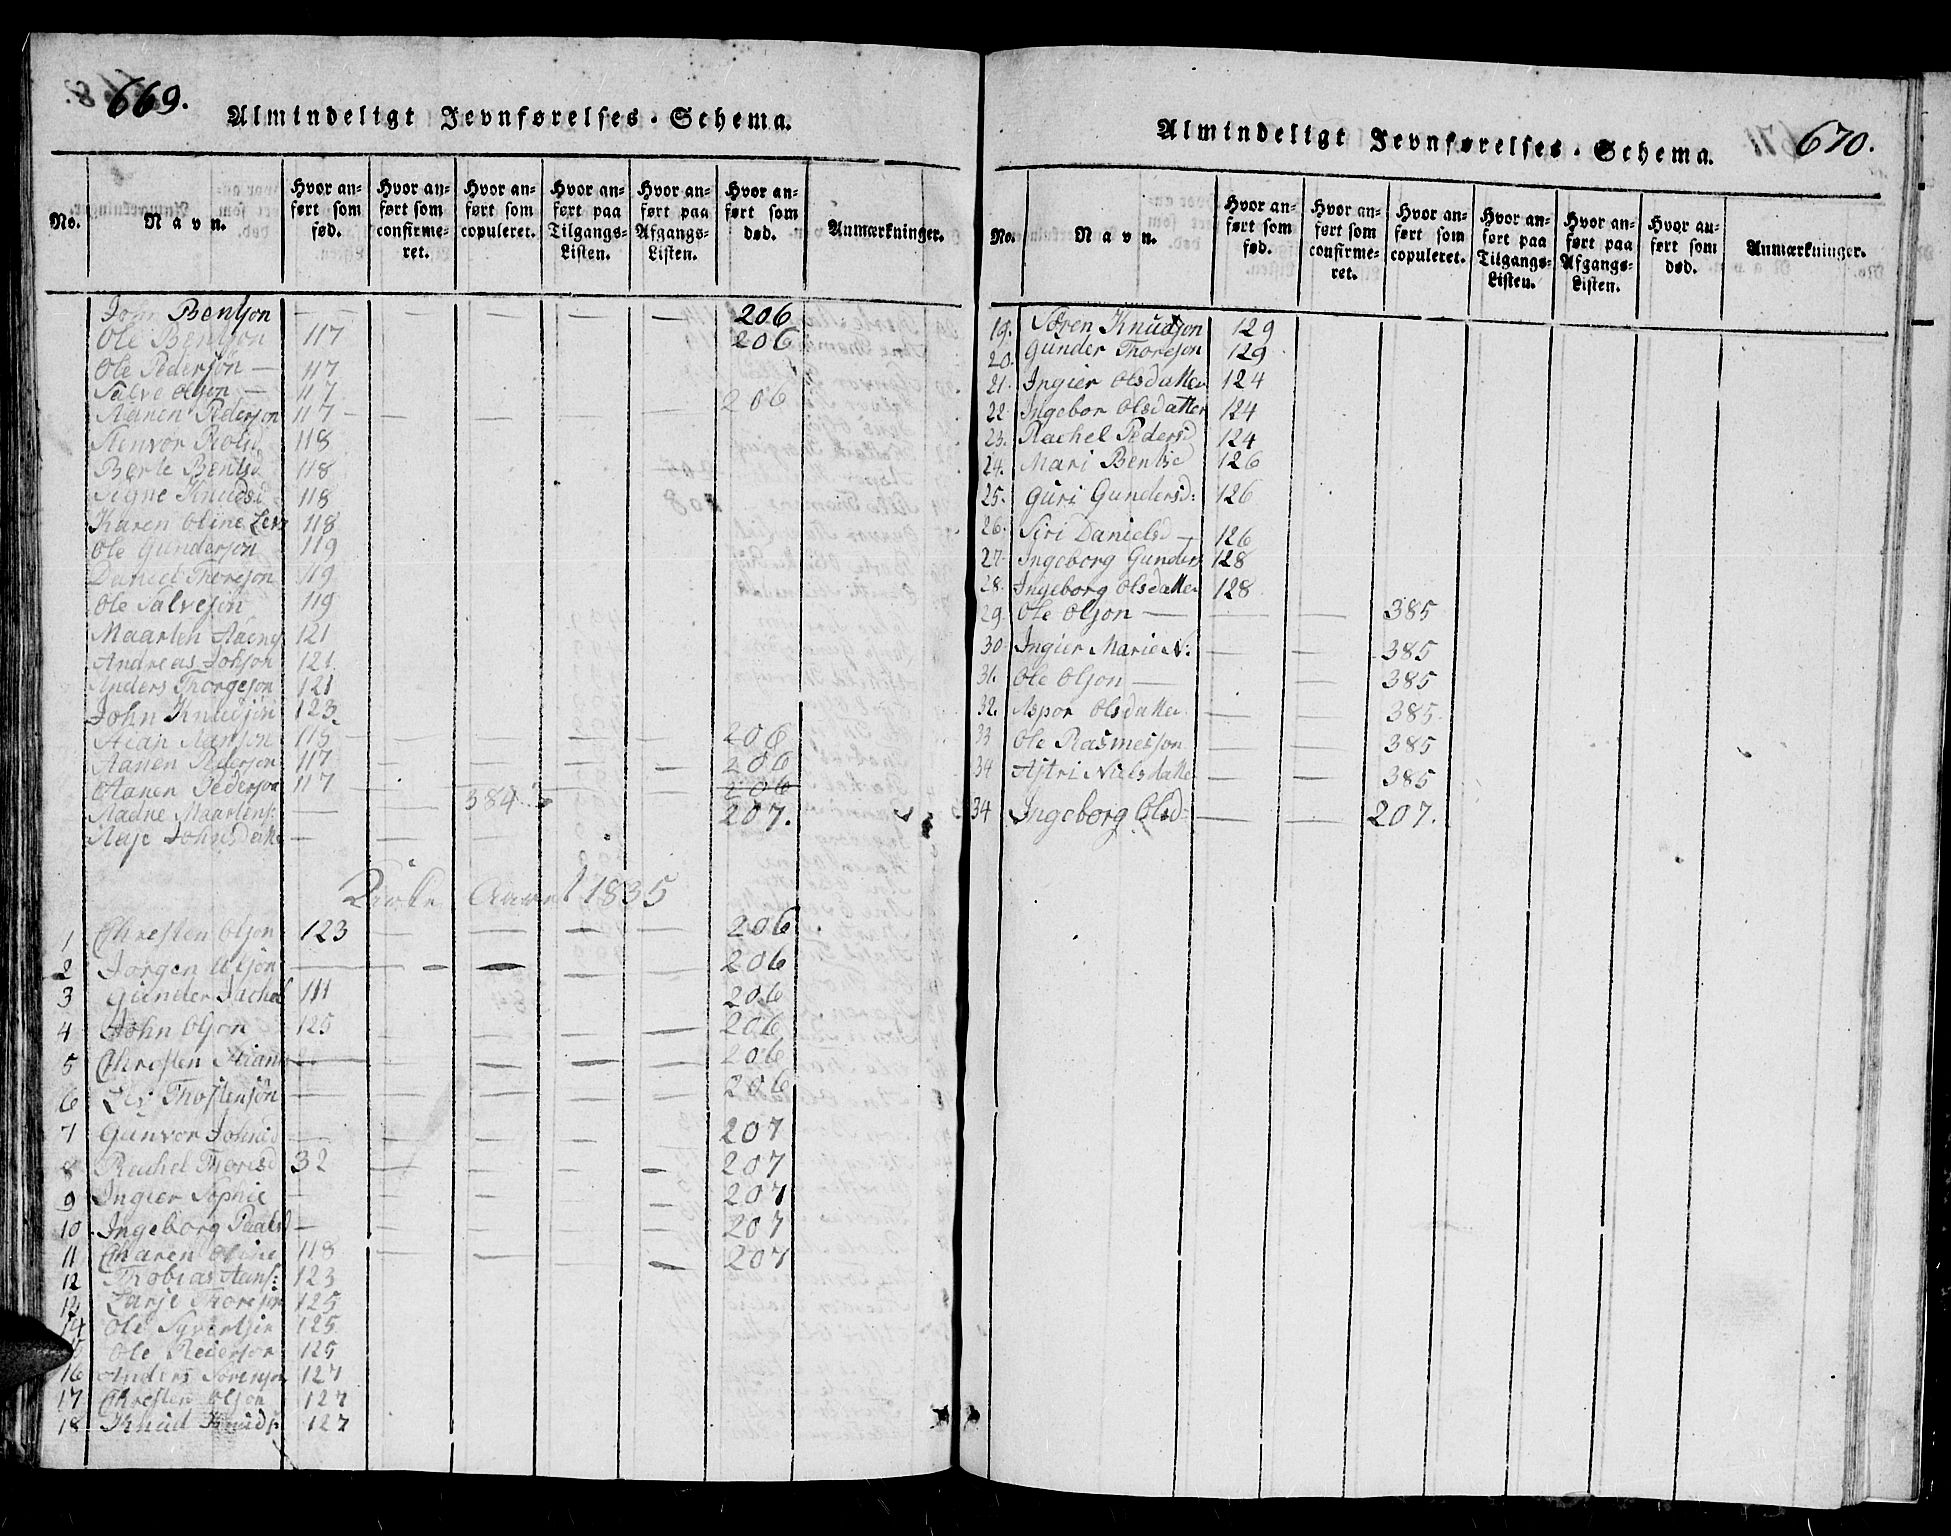 669.
Almindeligt Jevnførelses-Schema.
No. Navn. Hvor anført som fød. Hvor anført som confirmeret. Hvor anført som copuleret. Hvor anført paa Tilgangs-Listen. Hvor anført paa Afgangs-Listen. Hvor anført som død. Anmærkninger.
John Bentson — — — — — 206
Ole Bentson 117 206
Ole Pederson — 117
Salve Olson — 117
Aanen Pederson 117 — — — — 206
118
Berte Bentsd 118
Signe Knudsd 118
Karen Oline 118
Ole Gunderson 119
Daniel Thoreson 119
Ole Salveson 119
Maarten 121
Andreas 121
Anders Thorgeson 121
John Knudson 123
Stian 115 — — — — 206
Aanen Pederson 117 — — — — 206
Aanen Pederson 117 — — — — 206
Aadne Maartens: — 384 207.
Johnsdatte — — —
Aaret 1835
1 Chresten Olson 123 — — — — 206
2 Jørgen — — — — — 206
3 Gunder 111 206
4 John Olson 125 — — — — 206
5 Chresten Stian — — — — 206
6 Thostensøn — — — — 206
7 Gunvor Johnsd — — — 207
8 Rachel 32 — — — — 207
9 Ingier Sophie — — — — 207
10 Ingeborg — — — — 207
11 Charen Oline 118 — — — — 207
12 Thobias 123
13 Tarje Thoreson 125
14 Ole Syvertsen 125
15 Ole Rederson 125
16 Anders Sørenson 127
17 Chresten Olson 127
18 Knud Knuds: 127
670.
Almindeligt Jevnførelses-Schema.
No. Navn. Hvor anført som fød. Hvor anført som confirmeret. Hvor anført som copuleret. Hvor anført paa Tilgangs-Listen. Hvor anført paa Afgangs-Listen. Hvor anført som død. Anmærkninger.
19. Søren Knudson 129
20. Gunder Thoreson 129
21. Ingier Olsdatter 124
22. Ingebor Olsdatter 124
23. Rachel Pedersd 124
24. Mari Bentsd 126
25. Guri Gundersd: 126
26. Siri Danielsd — 126
27. Ingeborg Gunders 128
28. Ingeborg Olsdatter 128
29. Ole Olson — — — 385
30 Ingier Marie N: — — 385
31. Ole Olson — — 385
32. Aspor Olsdatter — — 385
33 Ole Rasmesson — — 385
34 Astri Nielsdatte — — 385
34 Ingeborg Olsd: — — 207.